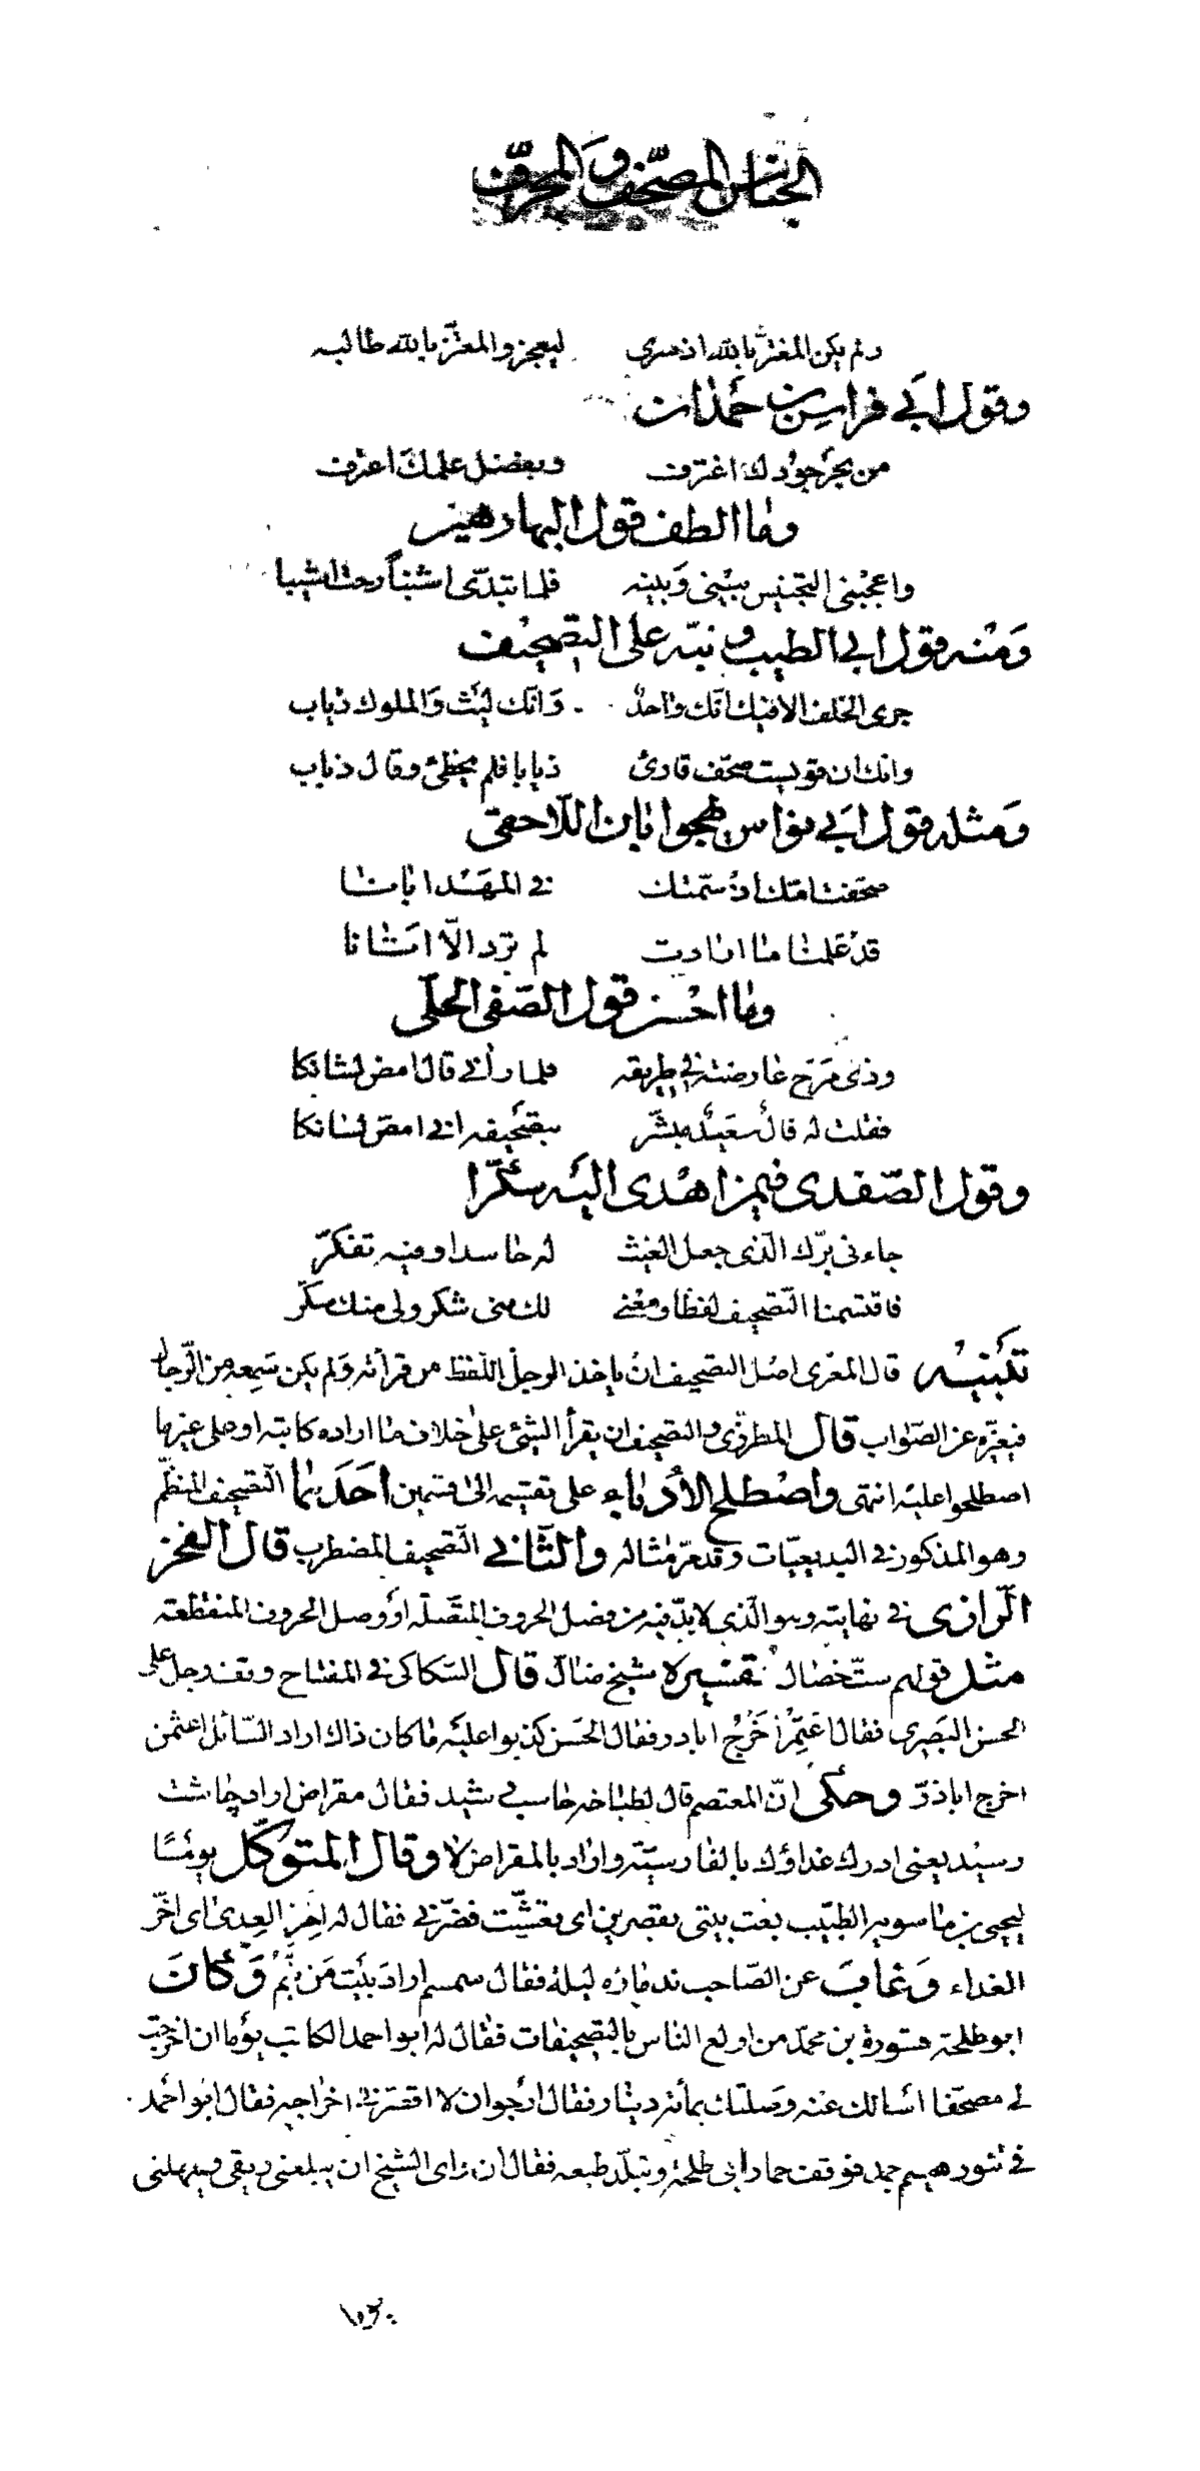 الجناس المصحّف والمحرّف
ولم يكن المغترّ بالله اذ سرى ليعجز والمعتزّ بالله طالبه
وقول ابي فراس بن حمدان
من بحر جودك اغترف وبفضل علمك اعترف
وما الطف قول البهاء زهير
واعجبني التجنيس بيني وبينه فلما تبدّى اشنباً رحت اشيبا
ومنه قول ابي الطيب ونبّه على التصحيف
جرى الخلف الا فيك انّك واحدٌ وانّك ليث والملوك ذياب
وانك ان قويست صحّف قارئ ذيابا فلم يخطئ وقال ذباب
ومثله قول ابي نواس يهجو ابان اللاحقي
صحّفت امّك اذ سمّتك في المهد ابانا
قد علمنا ما ارادت لم ترد الّا اتانا
وما احسن قول الصّفي الحلّي
وذي مرح عارضته في طريقه فلما رأني قال امض لشانكا
فقلت له فالٌ سعيدٌ مبشّر بتصحيفه اني امصّ لسانكا
وقول الصّفدي فيمن اهدى اليه سكّرا
جاءني برّك الذي جعل الغيث له حاسدا وفيه تفكرّ
فاقتسمنا التّصحيف لفظا ومعنى لك منى شكر ولي منك سكّر
تنبيه قال المعري اصل التصحيف ان ياخذ الرجل اللفظ من قراءته ولم يكن سمعه من الرّجال
فيغيّره عن الصّواب قال المطرزّي والتصحيف ان يقرأ الشئ على خلاف ما اراده كاتبه او على غيرما
اصطلحوا عليه انتهى واصطلح الأدباء على تقسيمه الى قسمين احدهما التّصحيف المنظّم
وهو المذكور في البديعيّات وقد مرّ مثاله والثاني التّصحيف المضطرب قال الفخر
الرازى في نهايته وهو الّذي لا بدّ فيه من فصل الحروف المتّصلة أو وصل الحروف المنفطعة
مثل قولهم ستّ خصال تفسيره شيخ ضالّ قال السّكاكى في المفتاح وتقد رجل على
الحسن البصري فقال اعتمر أخرج ابادر فقال الحسن كذبوا عليه ما كان ذاك اراد السّائل اعثمن
اخرج اباذرّ وحكى انّ المعتصم قال لطباخه حاسب رشيد فقال مقراض اراد چاشت
رسيد يعني ادرك غداؤك بالفارسيّة واراد بالمقراض لا وقال المتوكّل يومًا
ليحيى بن ماسويه الطبّيب بعت بيتي بقصرين اى تعشّيت فضرّني فقال له اخر العدى اى اخّر
الغداء وغاب عن الصّاحب ندماؤه ليلة فقال سمسم اراد بيّت من ثمّ وكان
ابو طلحة قسورة بن محمّد من اولع الناس بالتصحيفات فقال له ابو احمد الكاتب يوما ان اخرجت
لي مصحّفا اسالك عنه وصلتك بمأئة دينار فقال ارجو ان لا اقصّر في اخراجه فقال ابو احمد
في تنور هيسم جمد فوقف حمار ابي طلحة وتبلّد طبعه فقال ان رأى الشيخ ان يبلعني ريقى ويمهلني